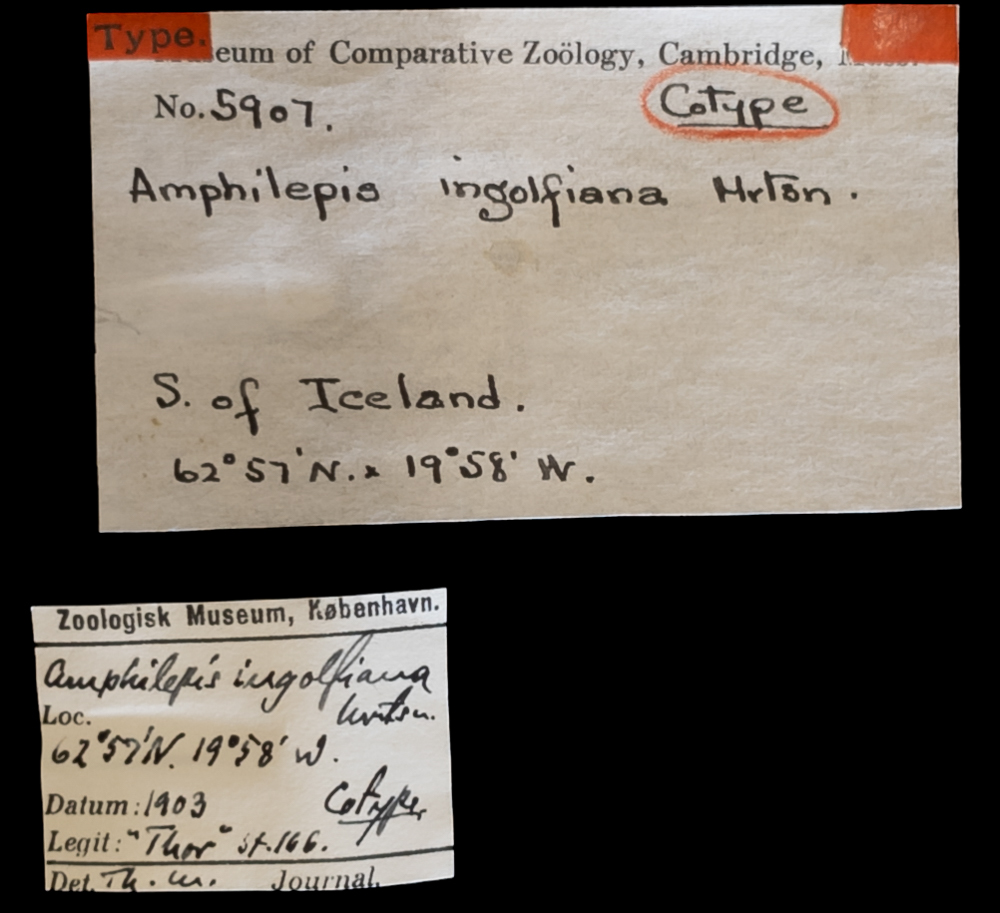 Type.
eum of Comparative Zoölogy, Cambridge,
No. 5907.
Cotype
Amphilepis ingolfiana Mrtsn.
S. of Iceland.
62°57'N. x 19°58' W.
Zoologisk Museum, København.
Amphilepis ingolfiana
Loc.
62°57'N. 19°58' W.
Datum: 1903 Cotype,
Legit: "Thor" st. 166.
Det. Th. M. Journal.